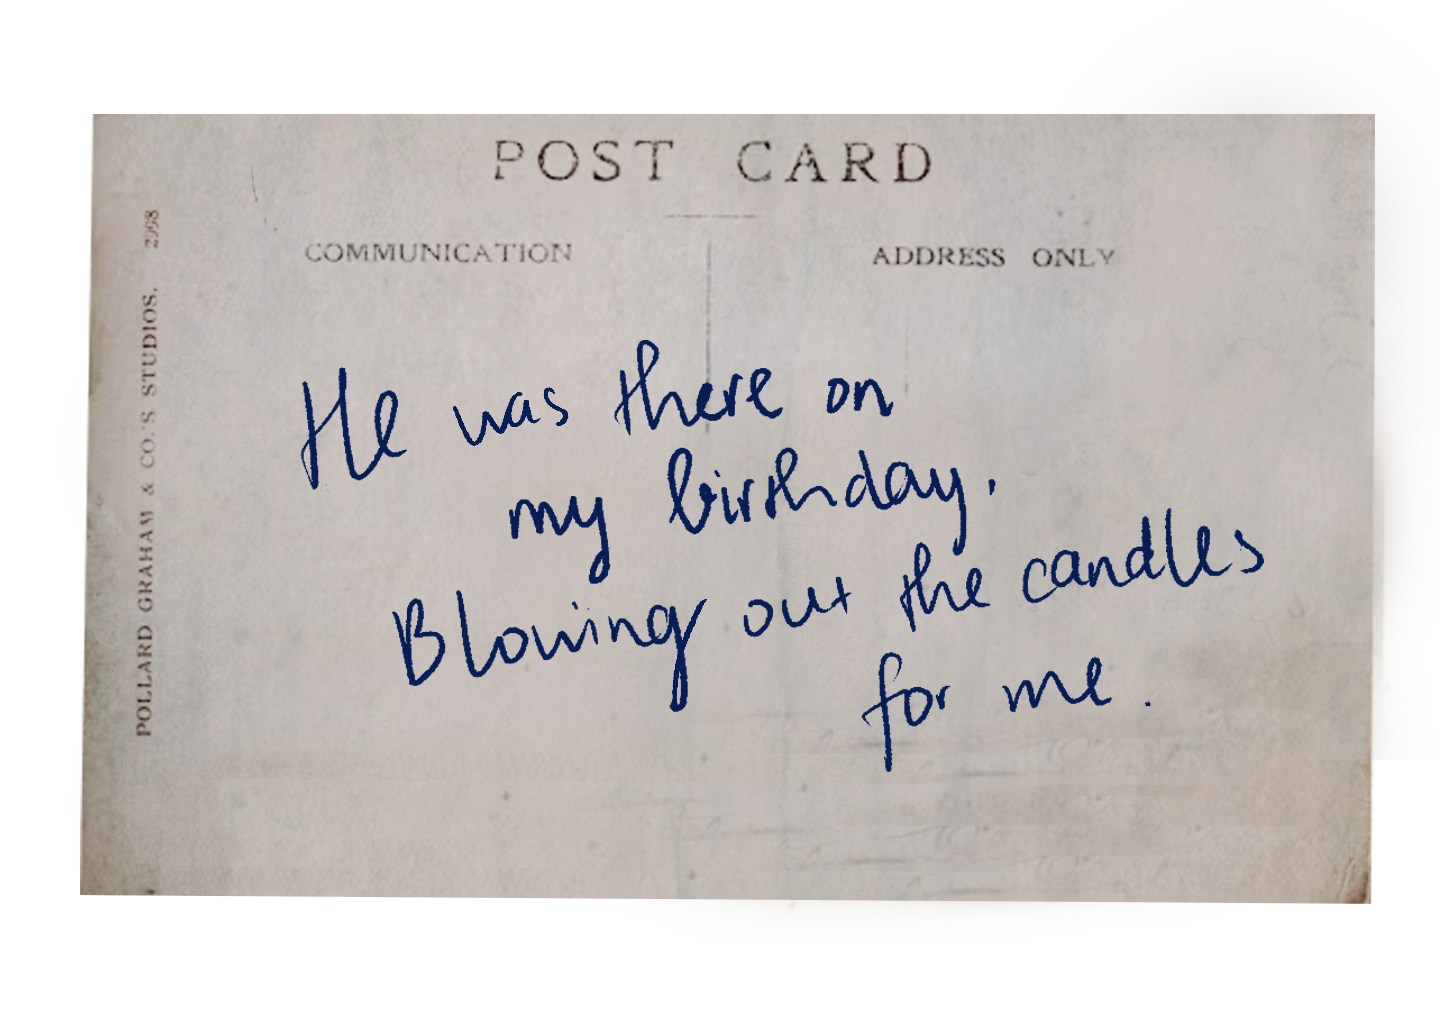 POST CARD
COMMUNICATION
ADDRESS ONLY
POLLARD GRAHAM & CO.'S STUDIOS. 2998
He was there on
my birthday.
Blowing out the candles
for me.